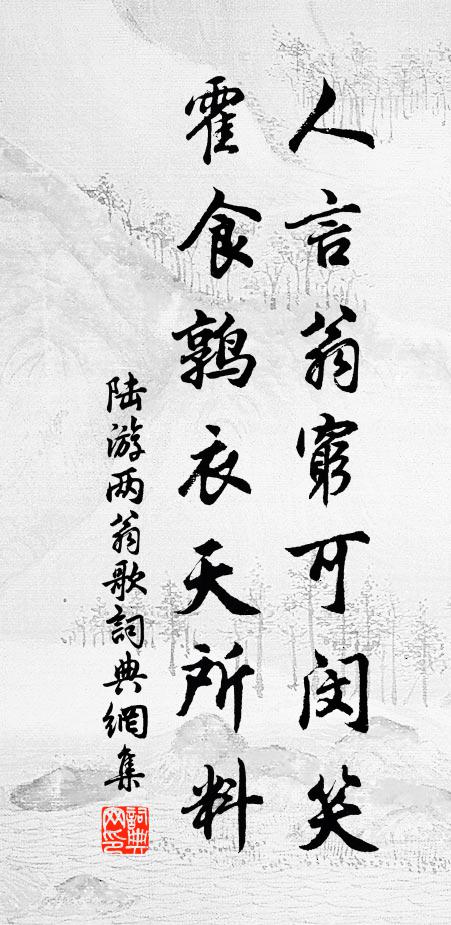 人言翁窮可闵笑
霍食鹑衣天所料
陆游两翁歌詞典網集
詞典網印